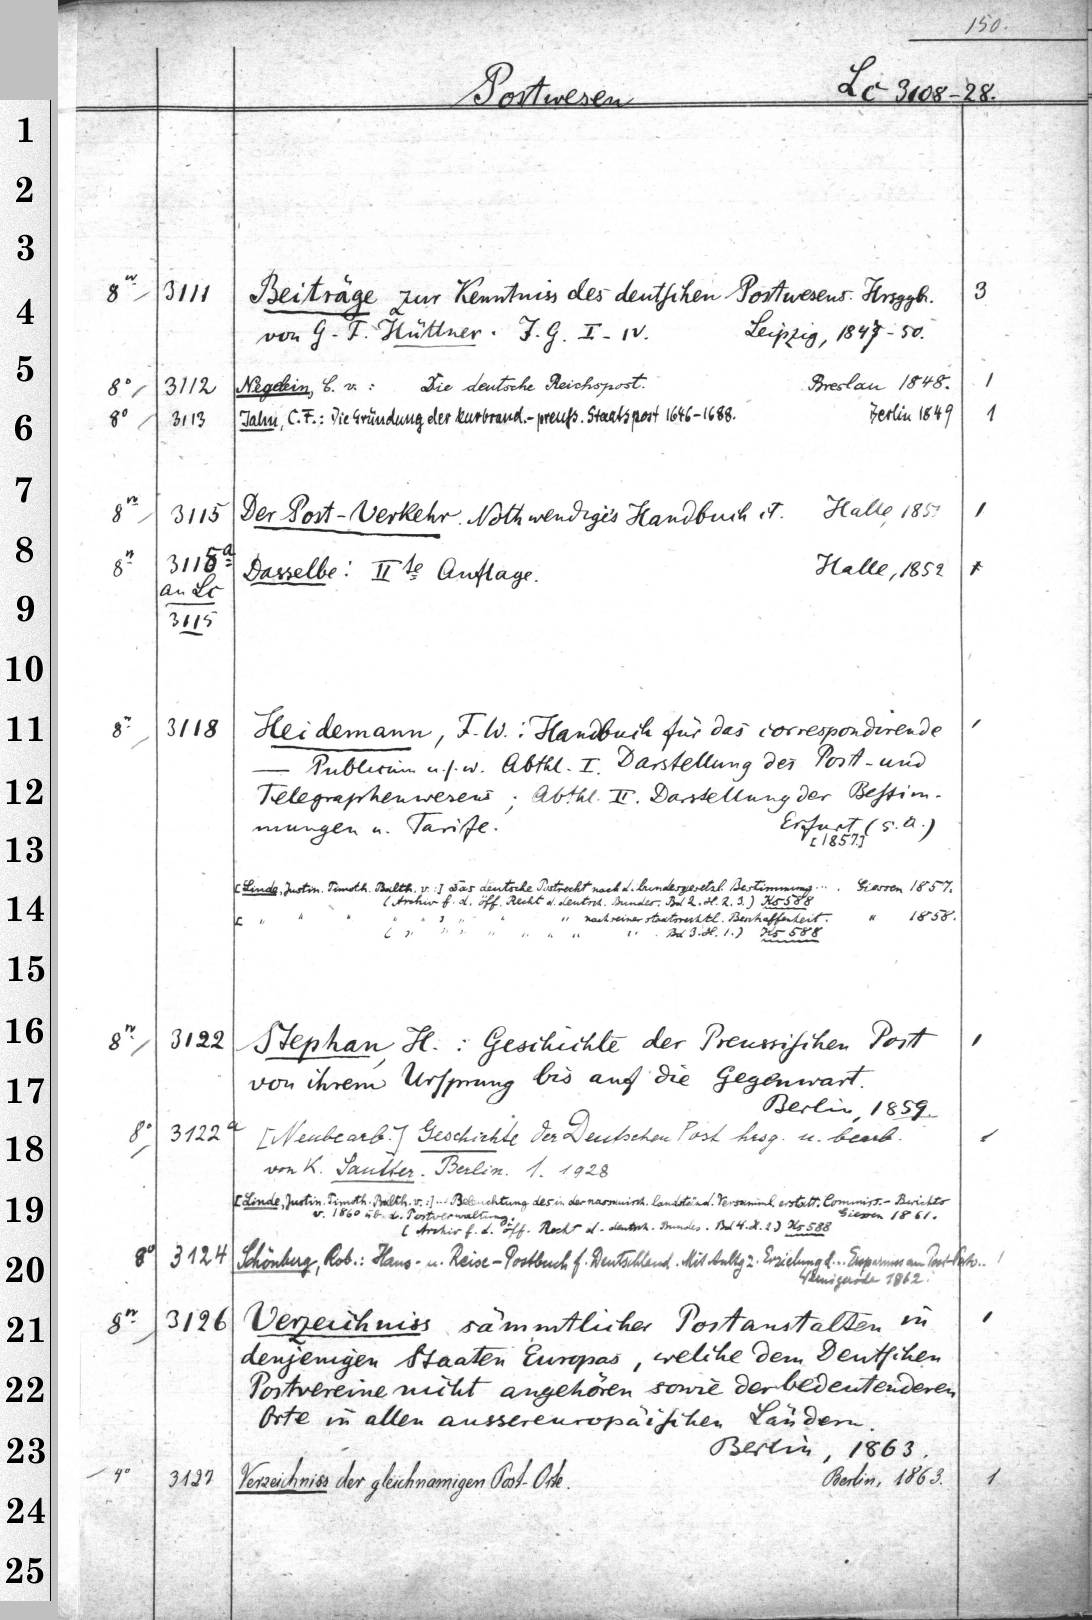 150.
Postwesen Lc 3108-28.
1
2
3
8° 3111 Beiträge zur Kenntniss des deutschen Postwesens. Hrsggb. 3
4
von G. F. Hüttner. J. G. I-IV. Leipzig, 1847-50.
5
8° 3112 Negelein, C. v.: Die deutsche Reichspost. Breslau 1848. 1
6
8° 3113 Jahn, C. F.: Die Gründung der kurbrand.-preuß. Staatspost 1646-1688. Berlin 1849 1
7
8° 3115 Der Post-Verkehr. Nothwendiges Handbuch Halle, 1
8
8° 3115a Dasselbe: II te Auflage. Halle, 1852
an Lc
9
3115
10
11
8° 3118 Heidemann, F. W.: Handbuch für das correspondirende 1
— Publicum u.s.w. Abthl. I. Darstellung des Post- und
12
Telegraphenwesens; Abthl. II. Darstellung der Bestim-
mungen u. Tarife. Erfurt (s. a.)
13
[1857]
[Linde, Justin. Timoth. Balth. v.:] Das deutsche Postrecht nach d. bundesgesetzl. Bestimmung... Giessen 1857.
14
(Archiv f. d. öff. Recht d. deutsch. Bundes. Bd 2. H. 2. 3.) Ks 588
[ " " " " " " " nach seiner staatsrechtl. Beschaffenheit. " 1858.
( " " " " " " " " Bd 3. H. 1.) Ks 588
15
16
8° 3122 Stephan, H.: Geschichte der Preussischen Post 1
17
von ihrem Ursprung bis auf die Gegenwart.
Berlin, 1859.
18
8° 3122a [Neubearb.] Geschichte der Deutschen Post hrsg. u. bearb. 1
von K. Sautter. Berlin. 1. 1928
19
[Linde, Justin. Timoth. Balth. v.:] ... Beleuchtung des in der nassauisch. landständ. Versamml. erstatt. Commiss.-Berichts
v. 1860 üb. d. Postverwaltung. Giessen 1861.
(Archiv f. d. öff. Recht d. deutsch. Bundes. Bd 4. H. 2) Ks 588
20
8° 3124 Schönberg, Rob.: Haus- u. Reise-Postbuch f. Deutschland. Mit Anltg z. Erzielung d... Ersparniss am Post-Porto.. 1
Wernigerode 1862.
21
8° 3126 Verzeichniss sämmtlicher Postanstalten in 1
denjenigen Staaten Europas, welche dem Deutschen
22
Postvereine nicht angehören sowie der bedeutenderen
Orte in allen aussereuropäischen Ländern.
23
Berlin, 1863.
4° 3127 Verzeichniss der gleichnamigen Post-Orte. Berlin, 1863. 1
24
25